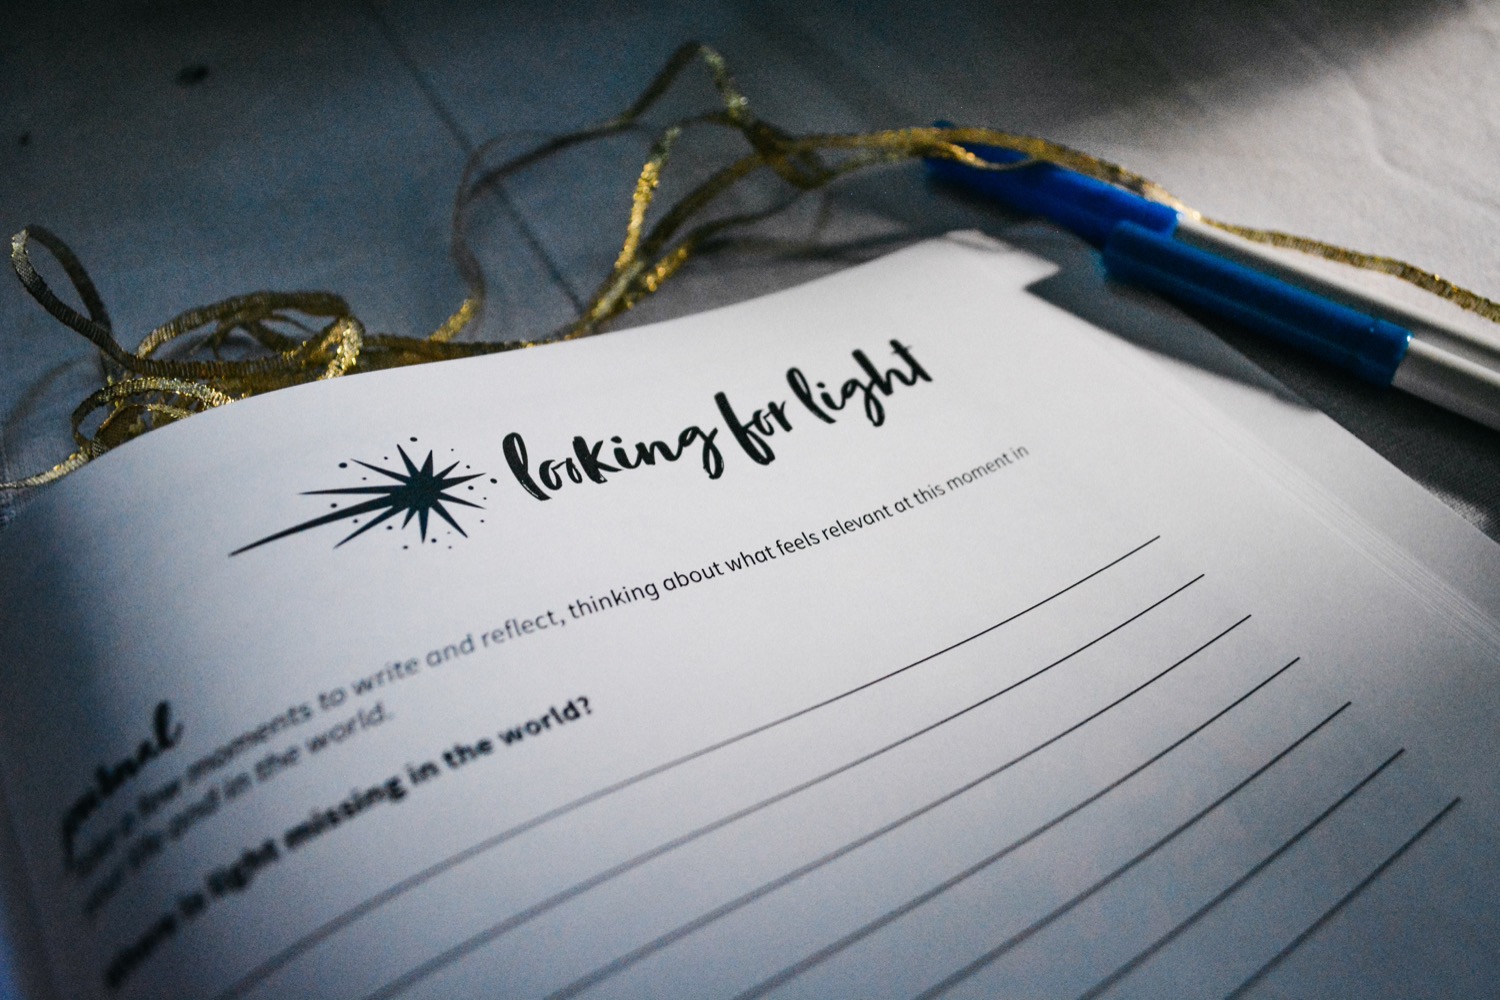 looking for light
journal
Take a few moments to write and reflect, thinking about what feels relevant at this moment in
your life and in the world.
Where is light missing in the world?